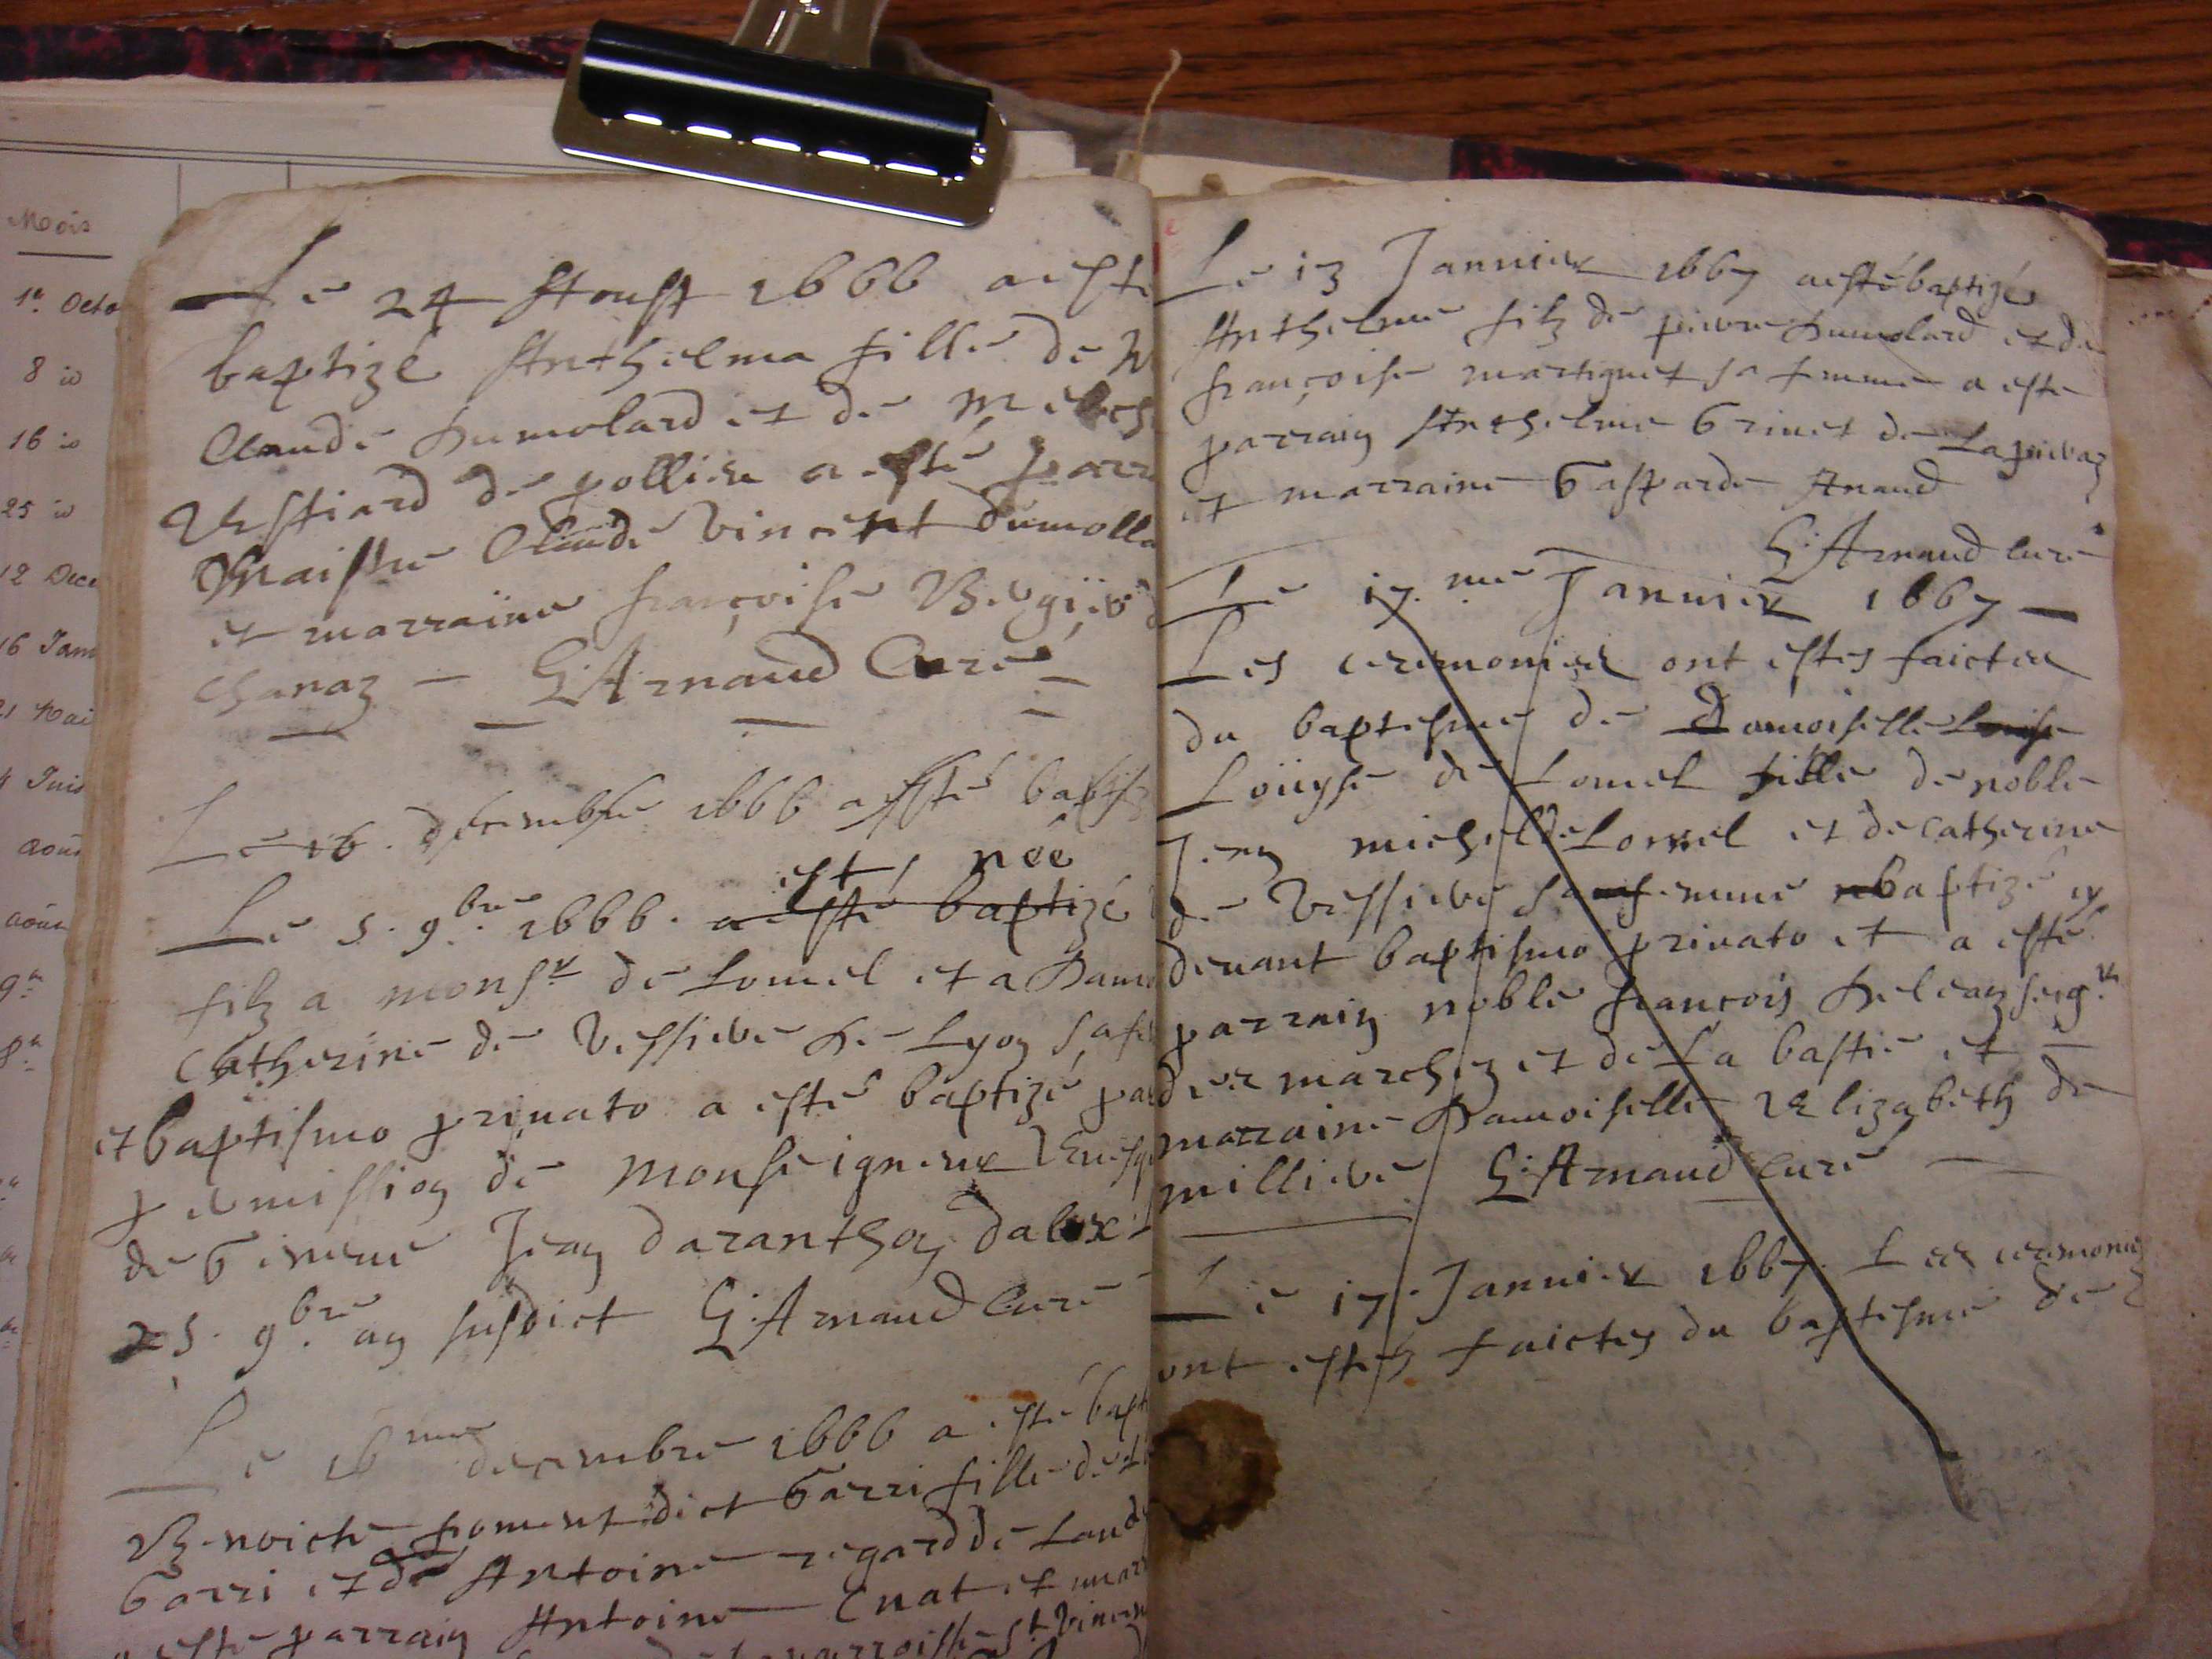 Mois
1r Octo
8 io
16 io
25 io
12 Dece
16 Janv
21 Mai
4 Juin
aoû
août
9re
8re
Le 24 Aoust 1666 a esté
baptizé Anthelma fille de
Claude Dumolard et de
Vestiard de pollieu a esté parr
Maistre Claude Vincent dumolla
et marraine françoise
Chanaz — G. Arnaud Curé
Le 16. decembre 1666 a esté baptis
est née
Le 5. 9bre 1666. a esté baptizé
filz a monsr de Lomel et a Dam
Catherine de Vessieve de Lyon sa fe
et baptismo priuato a esté baptizé pa
permission de Monseigneur Leuesq
de Geneue Jean daranthon dalex
25. 9bre an susdict G. Arnaud Curé
Le 16me decembre 1666 a esté bapt
Benoicte froment dict Garri fille de
Garri et de Antoine regard de Land
a esté parrain Antoine Cuat et marr
parroisse St Vincen
Le 13 Januier 1667 a esté baptizé
Anthelme filz de pierre Dumolard et de
françoise martignet sa femme a esté
parrain Anthelme Grinet de
et marraine Gasparde Anaud
G. Arnaud curé
Le 17.me Januier 1667 —
Les ceremonies ont estes faictes
du baptesme de Damoiselle Louise
Loüyse de Lomel fille de noble
Jean michel de Lomel et de Catherine
de Vessieve sa femme baptizé cy
deuant baptismo priuato et a esté
parrain noble françois Deleaz seigr
des marchez et de La bastie et
marraine Damoiselle Elizabeth de
millieve G. Arnaud curé —
Le 17. Januier 1667. Les ceremonies
ont estes faictes du baptesme de